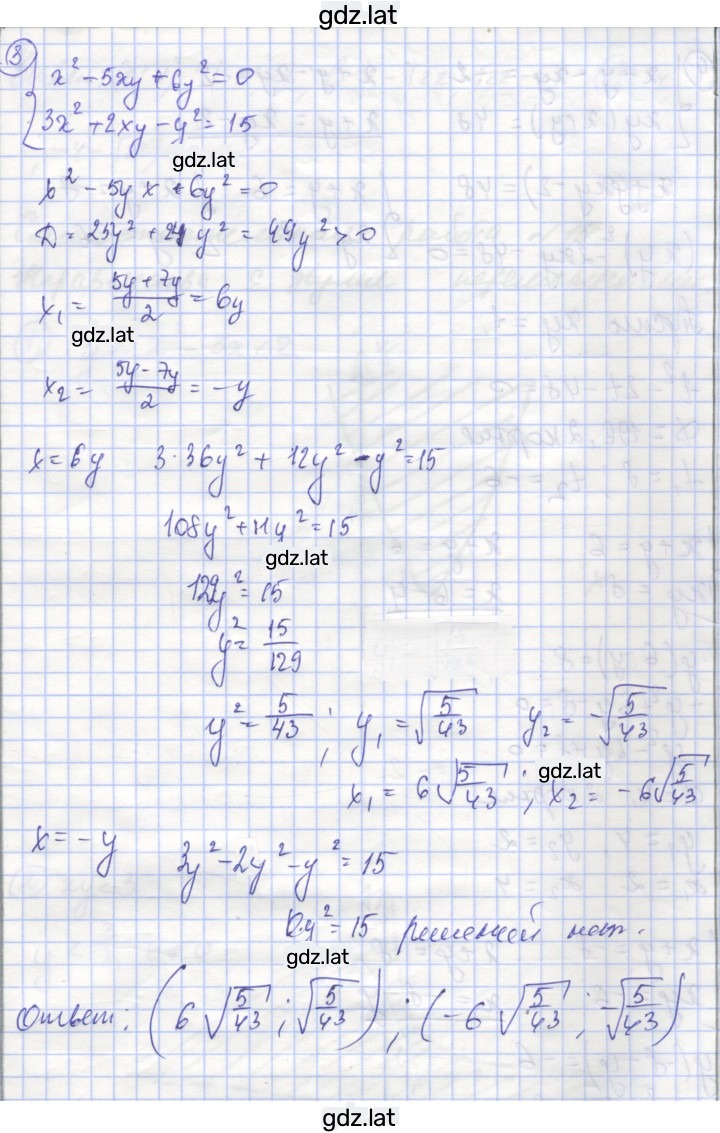 gdz.lat
③
x² - 5xy + 6y² = 0
3x² + 2xy - y² = 15
gdz.lat
x² - 5y x + 6y² = 0
D = 25y² + 24y² = 49y² > 0
x₁ = (5y + 7y)/2 = 6y
gdz.lat
x₂ = (5y - 7y)/2 = -y
x = 6y 3·36y² + 12y² - y² = 15
108y² + 11y² = 15
gdz.lat
129y² = 15
y² = 15/129
y² = 5/43 ; y₁ = √(5/43) y₂ = -√(5/43)
gdz.lat
x₁ = 6√(5/43) ; x₂ = -6√(5/43)
x = -y 3y² - 2y² - y² = 15
0·y² = 15 решений нет.
gdz.lat
Ответ: (6√(5/43) ; √(5/43)) ; (-6√(5/43) ; -√(5/43))
gdz.lat